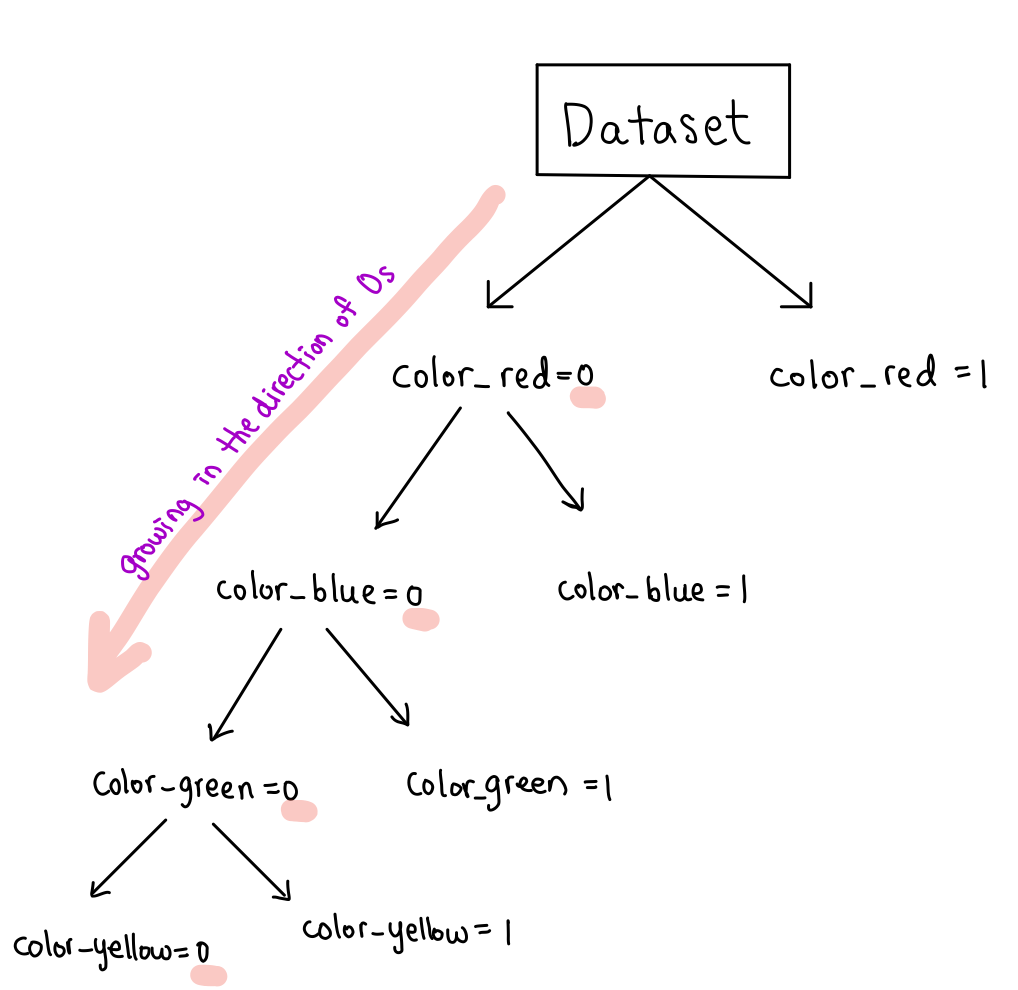 Dataset
growing in the direction of 0s
color_red=0
color_red =1
color_blue=0
color_blue =1
color-green =0
color_green =1
color-yellow=0
color-yellow= 1